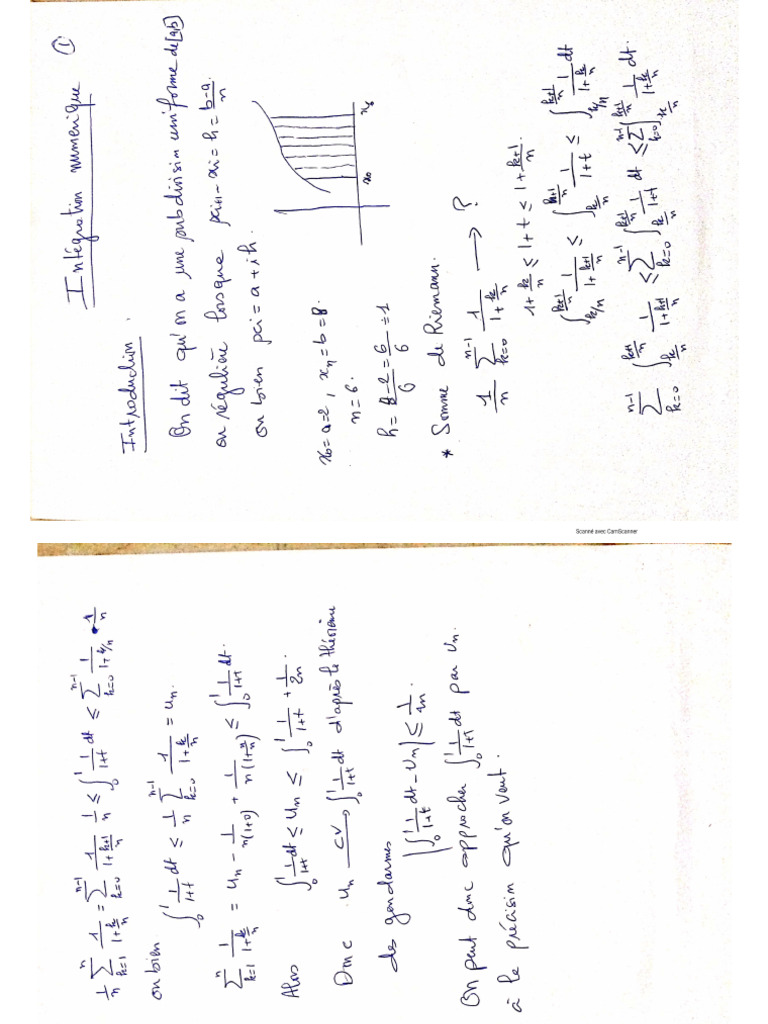 Intégration numérique ①
Introduction.
On dit qu'on a une subdivision uniforme de [a,b]
ou régulière lorsque x_{i+1} - x_i = h = \frac{b-a}{n}
ou bien x_i = a + i h.
x_0 = a = 2, x_n = b = 8.
n = 6.
h = \frac{8-2}{6} = \frac{6}{6} = 1
x_0 x_6
* Somme de Riemann.
\frac{1}{n} \sum_{k=0}^{n-1} \frac{1}{1+\frac{k}{n}} → ?
1 + \frac{k}{n} ≤ 1 + t ≤ 1 + \frac{k+1}{n}
∫_{k/n}^{\frac{k+1}{n}} \frac{1}{1+\frac{k+1}{n}} ≤ ∫_{\frac{k}{n}}^{\frac{k+1}{n}} \frac{1}{1+t} ≤ ∫_{k/n}^{\frac{k+1}{n}} \frac{1}{1+\frac{k}{n}} dt
\sum_{k=0}^{n-1} ∫_{\frac{k}{n}}^{\frac{k+1}{n}} \frac{1}{1+\frac{k+1}{n}} ≤ \sum_{k=0}^{n-1} ∫_{\frac{k}{n}}^{\frac{k+1}{n}} \frac{1}{1+t} dt ≤ \sum_{k=0}^{n-1} ∫_{\frac{k}{n}}^{\frac{k+1}{n}} \frac{1}{1+\frac{k}{n}} dt.
Scanné avec CamScanner
\frac{1}{n} \sum_{k=1}^{n} \frac{1}{1+\frac{k}{n}} = \sum_{k=0}^{n-1} \frac{1}{1+\frac{k+1}{n}} \frac{1}{n} ≤ ∫_0^1 \frac{1}{1+t} dt ≤ \sum_{k=0}^{n-1} \frac{1}{1+k/n} * \frac{1}{n}
ou bien
∫_0^1 \frac{1}{1+t} dt ≤ \frac{1}{n} \sum_{k=0}^{n-1} \frac{1}{1+\frac{k}{n}} = u_n.
\sum_{k=1}^{n} \frac{1}{1+\frac{k}{n}} = u_n - \frac{1}{n(1+0)} + \frac{1}{n(1+\frac{n}{n})} ≤ ∫_0^1 \frac{1}{1+t} dt.
Alors ∫_0^1 \frac{1}{1+t} dt ≤ u_n ≤ ∫_0^1 \frac{1}{1+t} + \frac{1}{2n}
Donc u_n \xrightarrow{CV} ∫_0^1 \frac{1}{1+t} dt d'après le théorème
des gendarmes
|∫_0^1 \frac{1}{1+t} dt - u_n| ≤ \frac{1}{2n}.
On peut donc approcher ∫_0^1 \frac{1}{1+t} dt par u_n
à la précision qu'on veut.